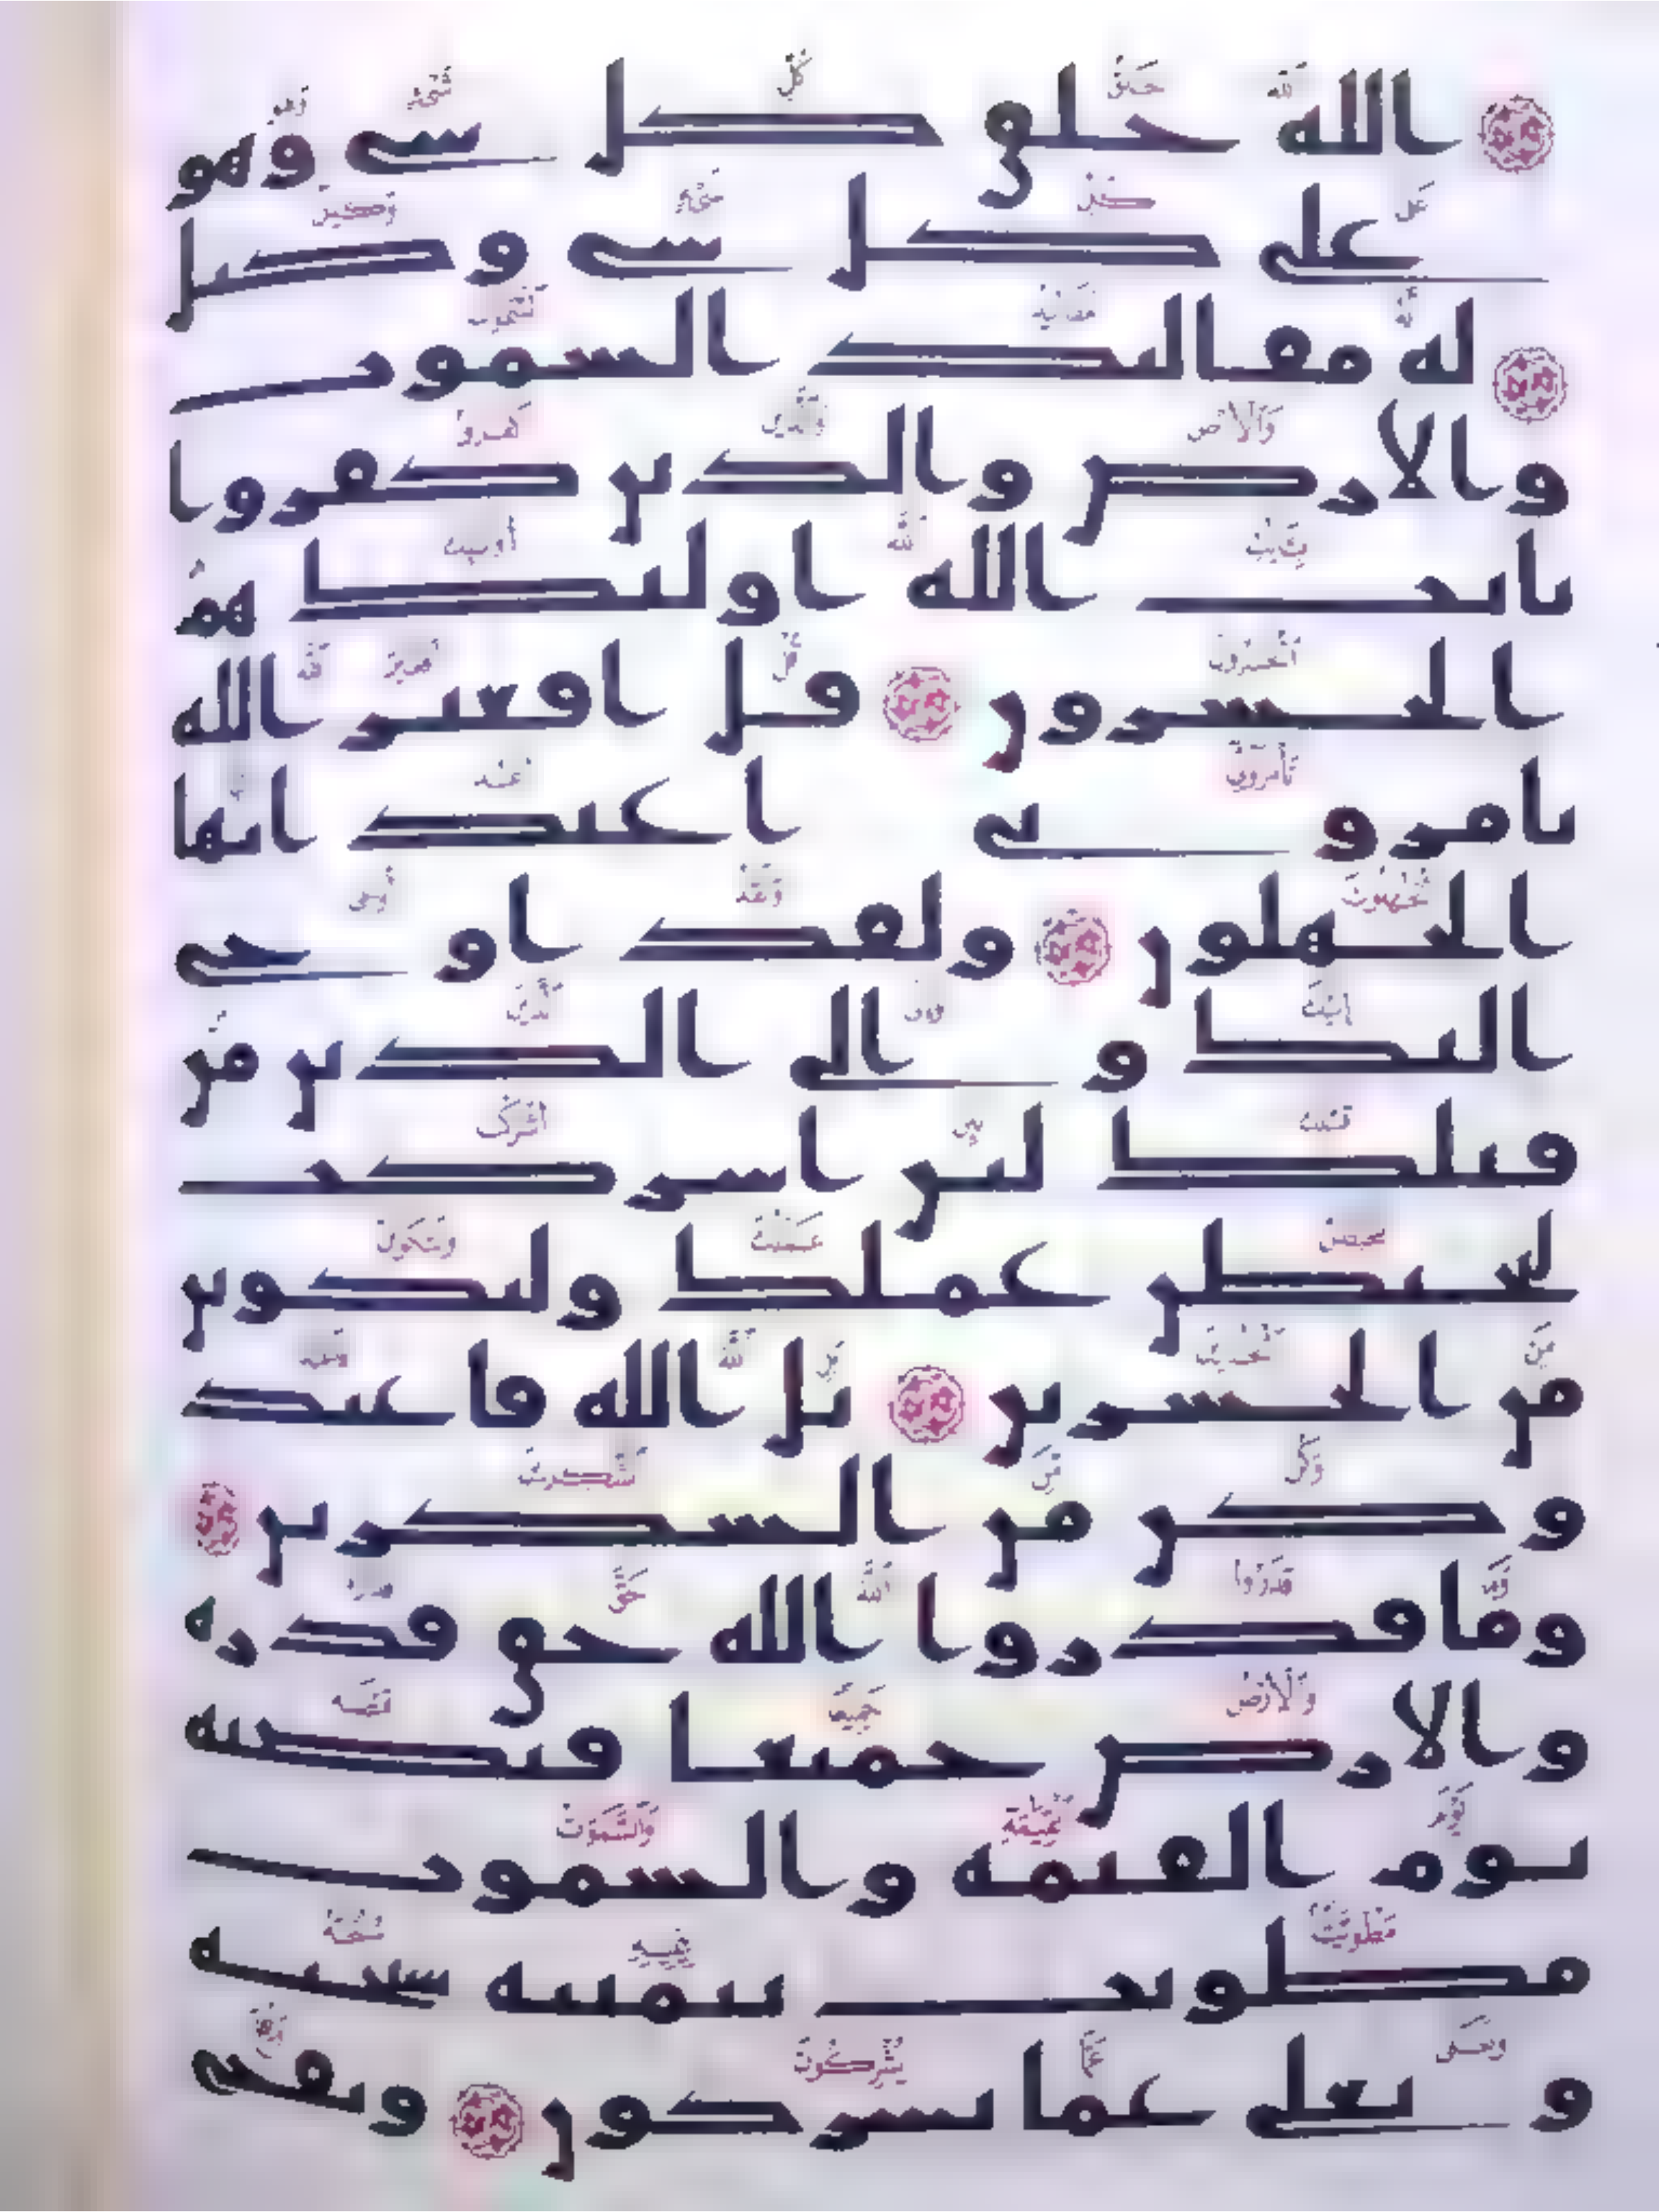 الله خلق كل شىء وهو
على كل شىء وكيل
له مقاليد السموت
والارض والذين كفروا
بايت الله اوليك هم
الخسرون قل افغير الله
تامرونى اعبد ايها
الجهلون ولقد اوحى
اليك والى الذين من
قبلك لين اشركت
ليحبطن عملك ولتكونن
من الخسرين بل الله فاعبد
وكن من الشكرين
وما قدروا الله حق قدره
والارض جميعا قبضته
يوم القيمة والسموت
مطويت بيمينه سبحنه
وتعلى عما يشركون ونفخ